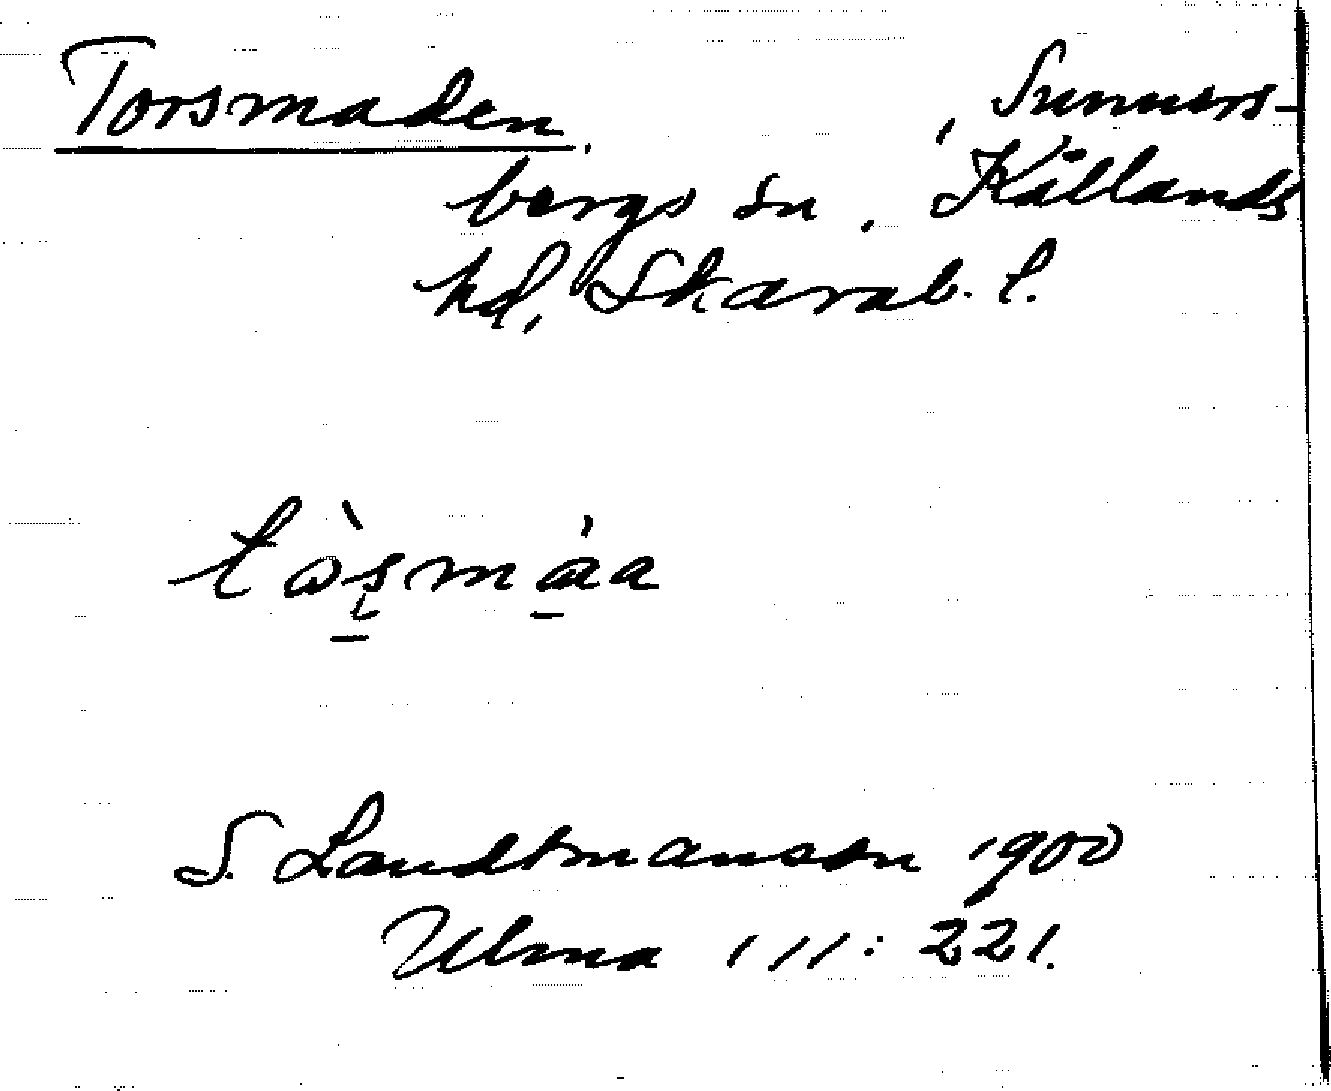 Torsmaden. , Sunners-
bergs sn, Kållands
hd, Skarab. l.
S. Landtmanson 1900
Ulma 111:221.